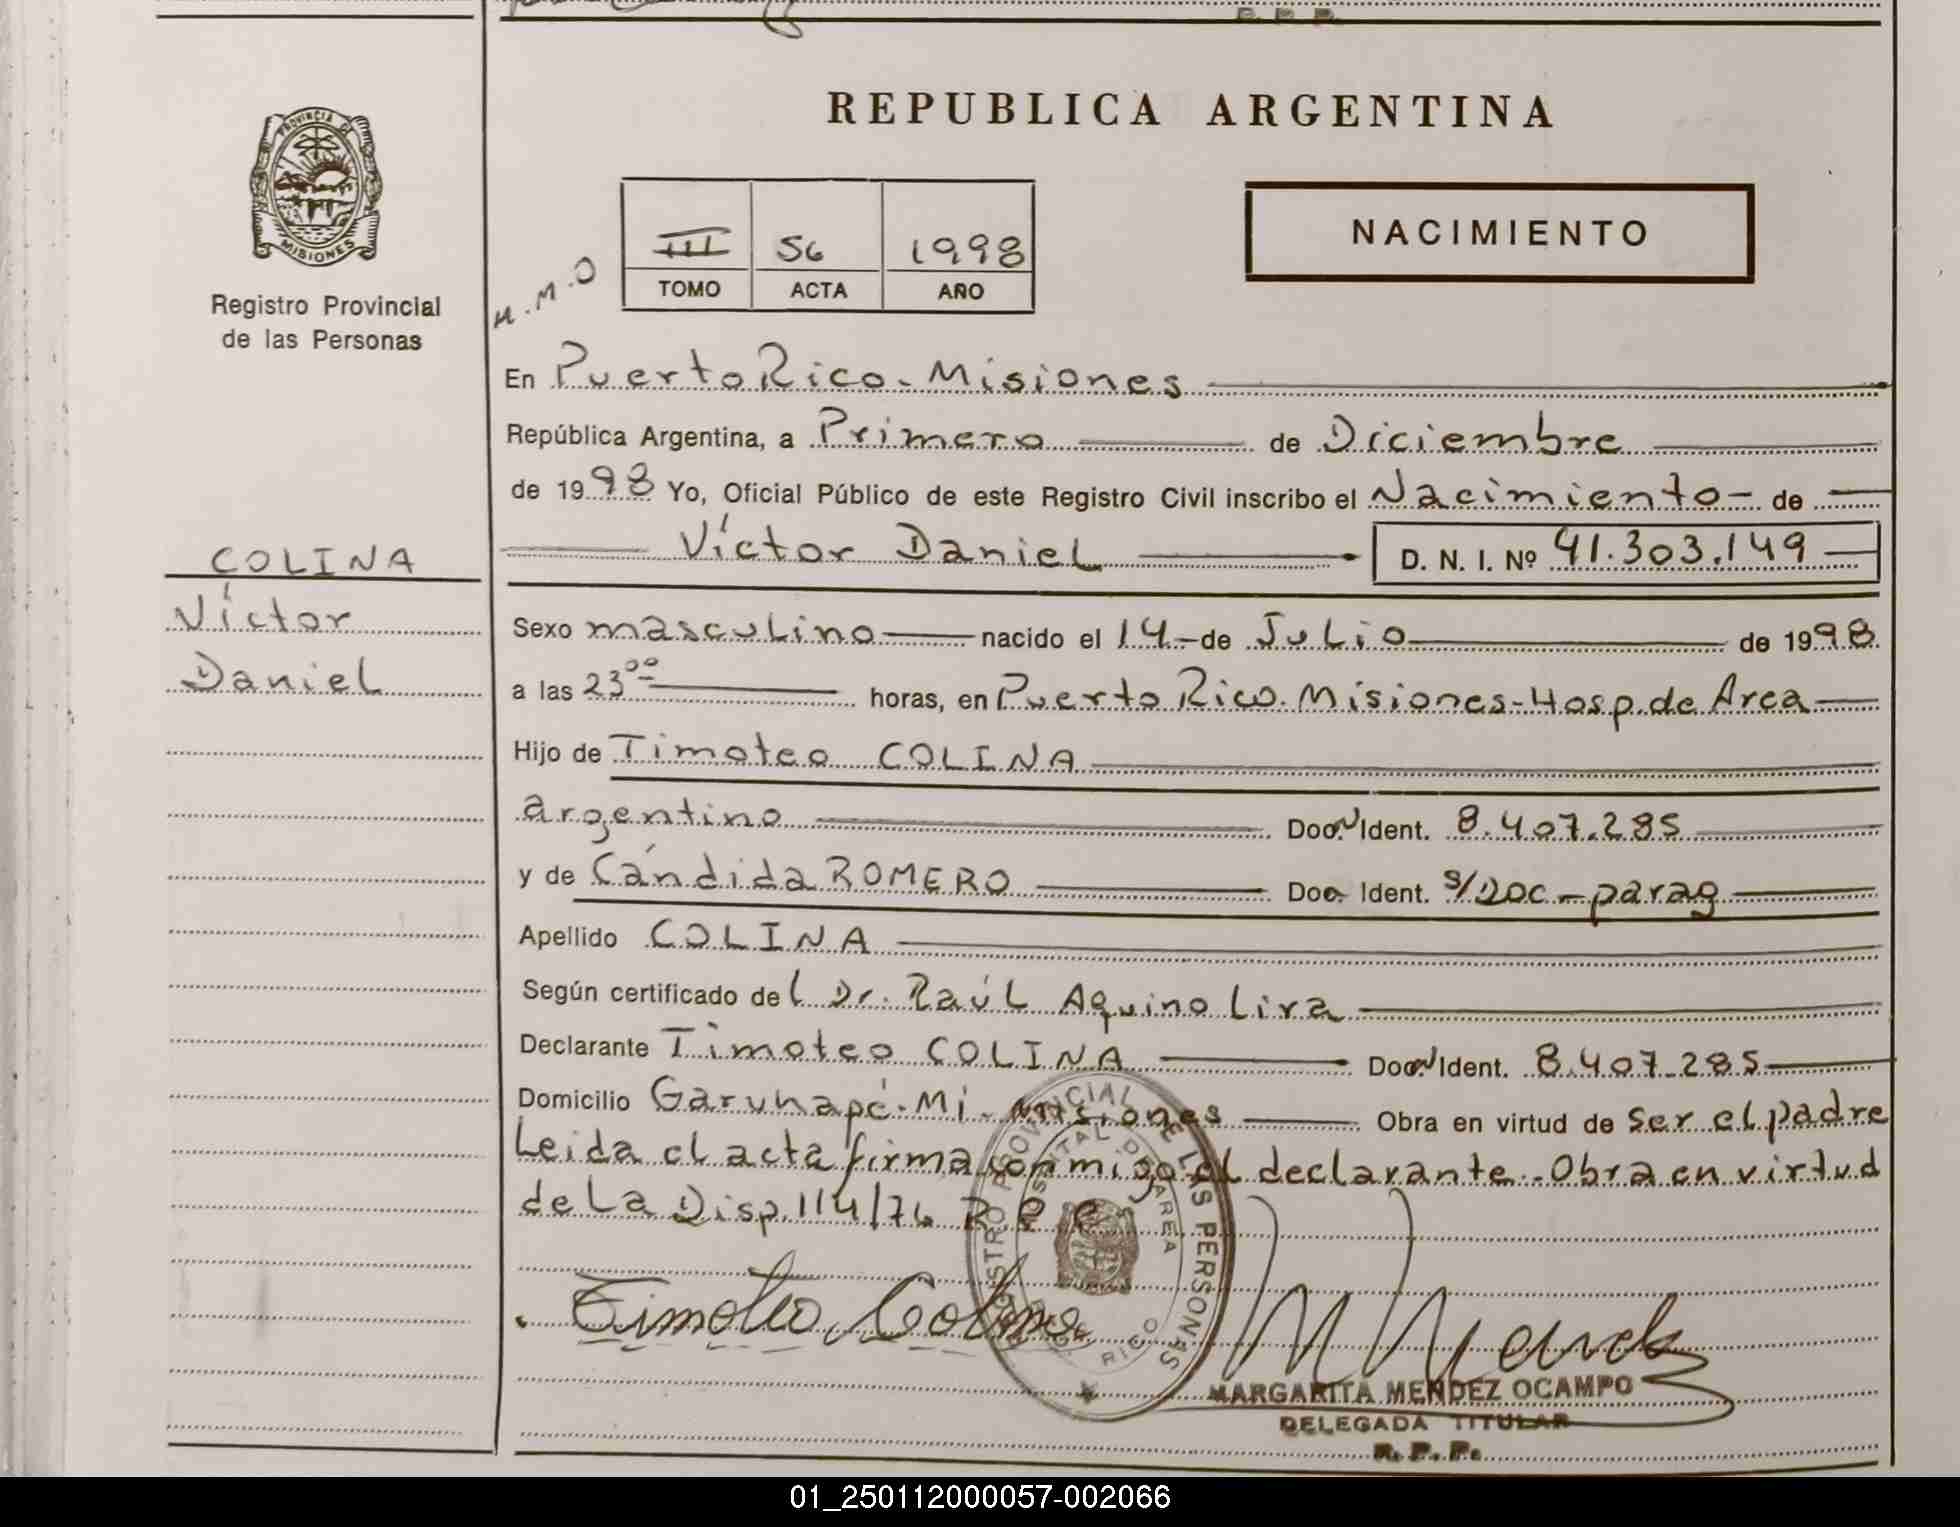 R. P. P.
PROVINCIA DE
MISIONES
Registro Provincial
de las Personas
REPUBLICA ARGENTINA
III 56 1998
TOMO ACTA AÑO
NACIMIENTO
M.M.O
En Puerto Rico - Misiones
República Argentina, a Primero de Diciembre
de 1998 Yo, Oficial Público de este Registro Civil inscribo el Nacimiento - de
Víctor Daniel D. N. I. Nº 41.303.149
COLINA
Víctor
Daniel
Sexo masculino nacido el 14 - de Julio de 1998
a las 23 00 horas, en Puerto Rico. Misiones - Hosp. de Area
Hijo de Timoteo COLINA
argentino Doc. N Ident. 8.407.285
y de Cándida ROMERO Doc. Ident. s/Doc - parag
Apellido COLINA
Según certificado del Dr. Raúl Aquino Lira
Declarante Timoteo COLINA Doc. N Ident. 8.407.285
Domicilio Garuhapé - Mí - Misiones Obra en virtud de ser el padre
Leida el acta firma conmigo el declarante - Obra en virtud
de La Disp. 114/76 R P P.
Timoteo Colina
REGISTRO PROVINCIAL DE LAS PERSONAS
HOSPITAL DE AREA
RICO
MARGARITA MENDEZ OCAMPO
DELEGADA TITULAR
R. P. P.
01_250112000057-002066